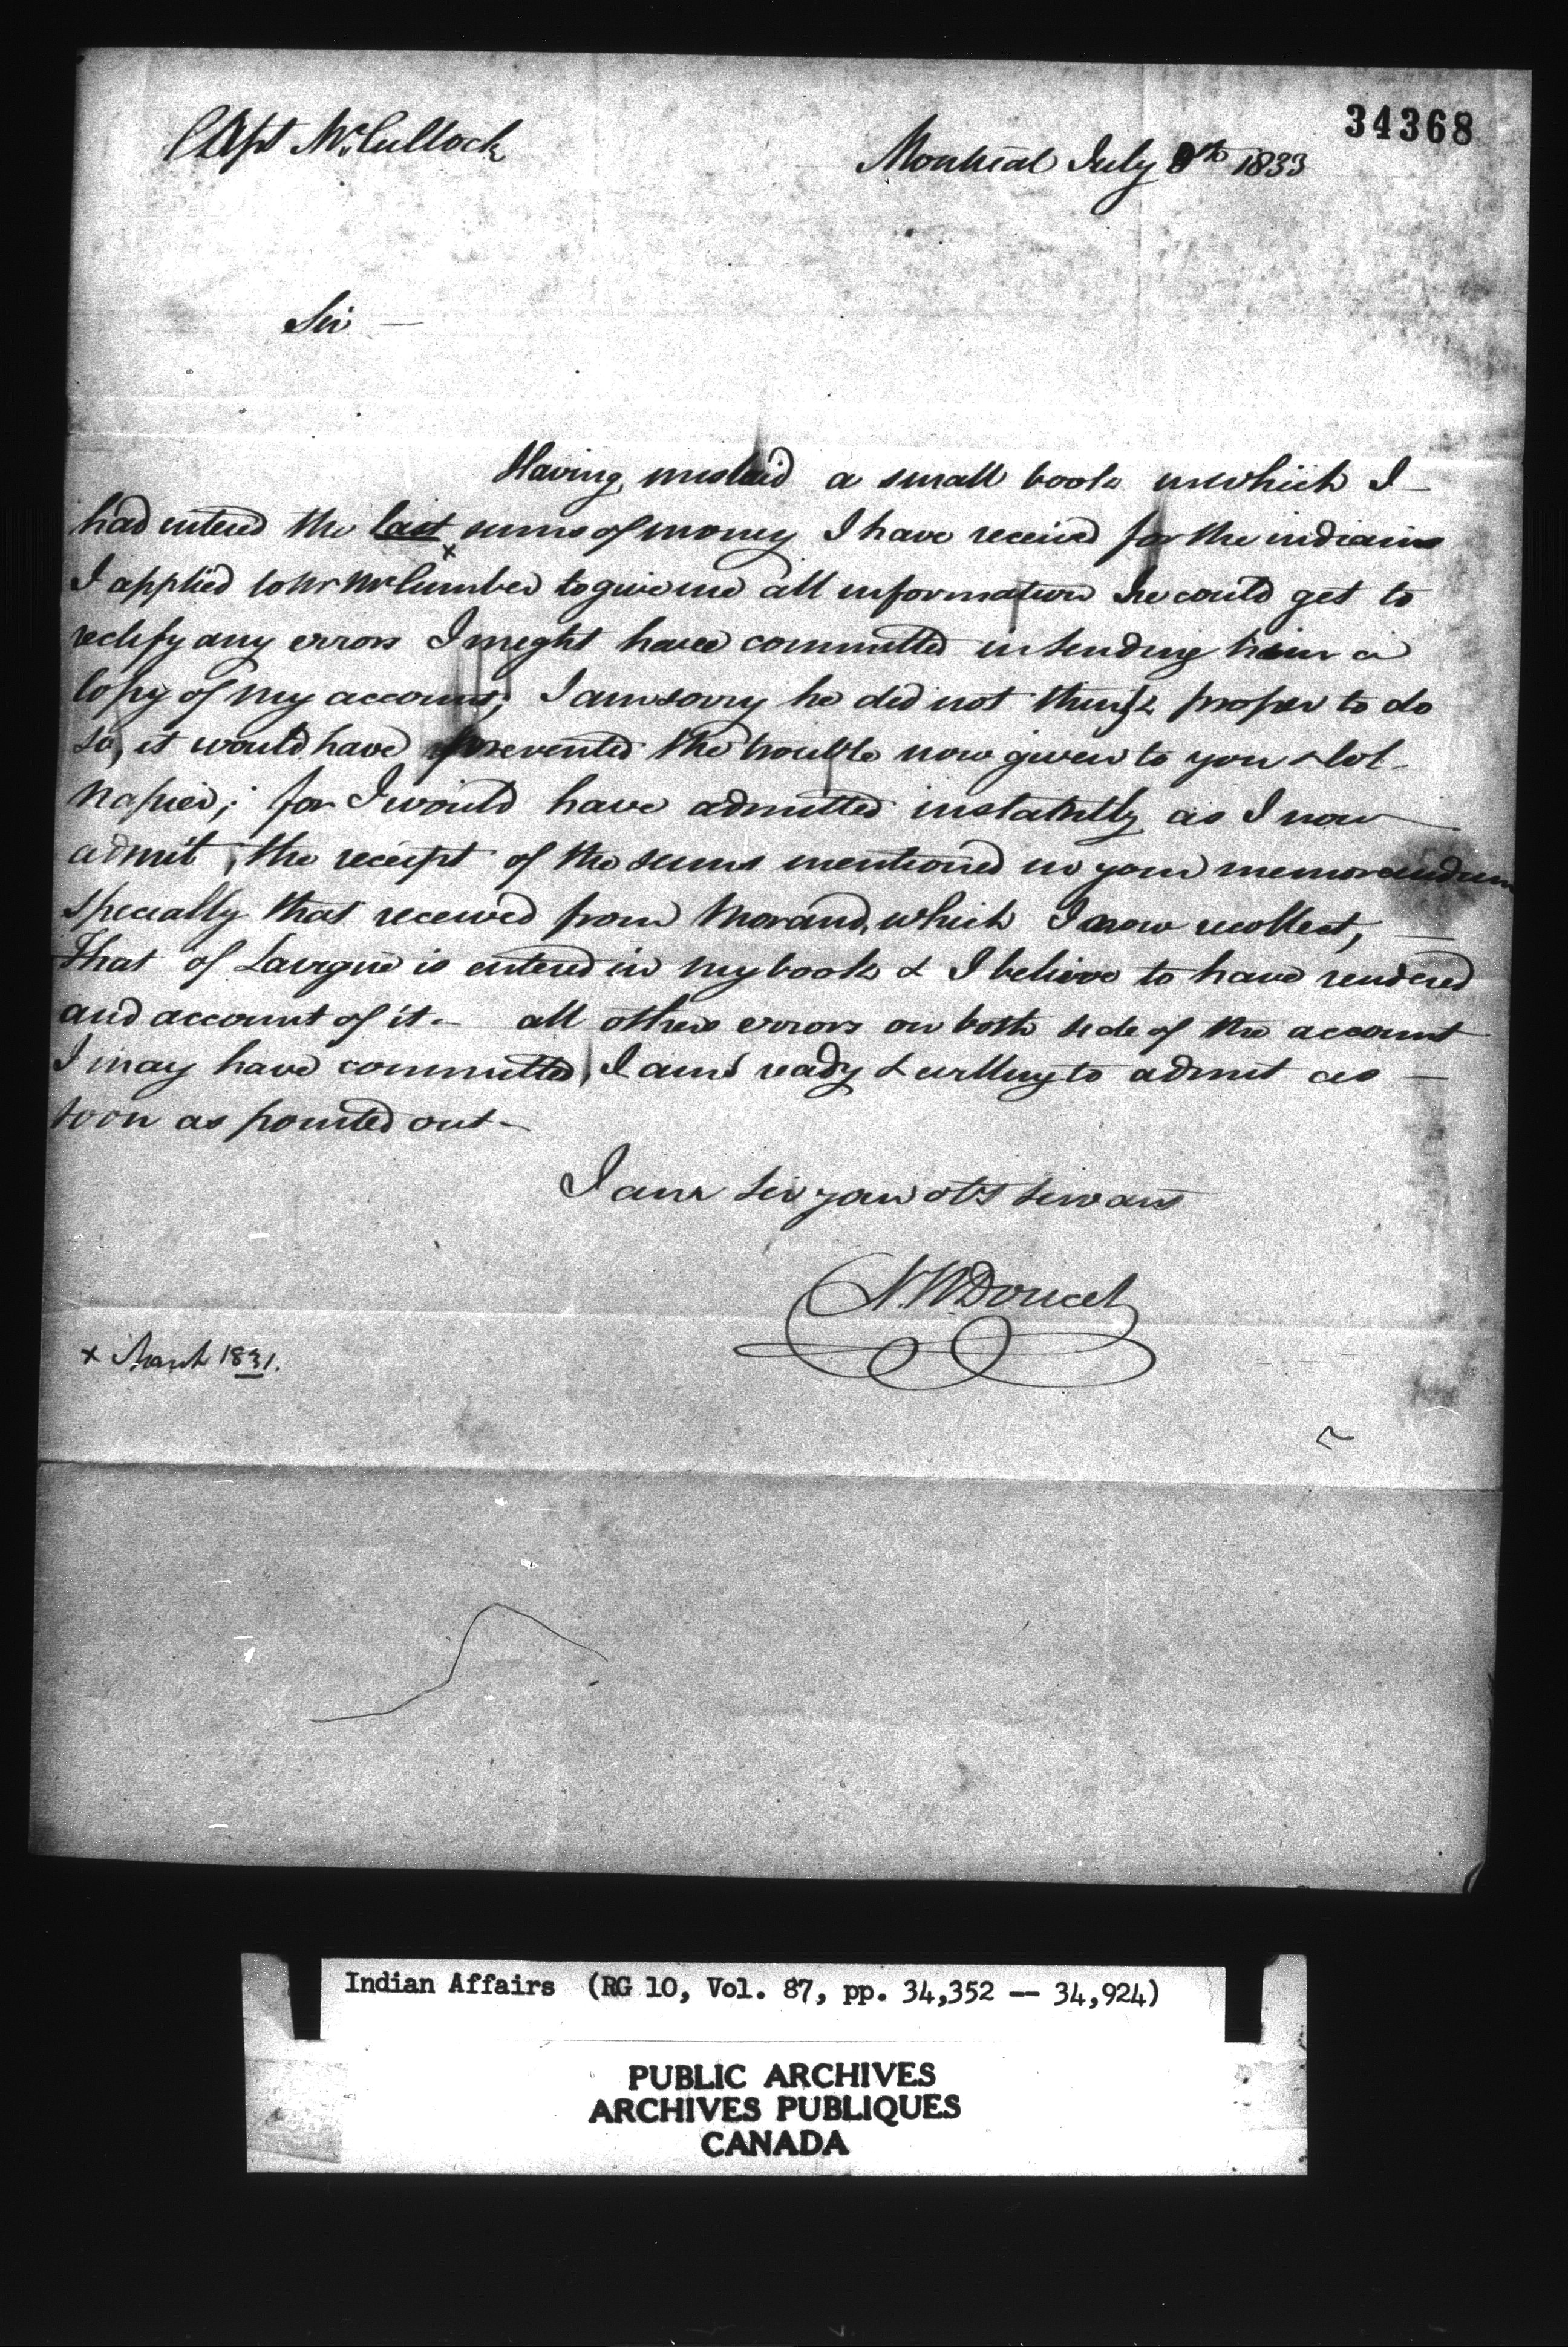 34368
Capt McCullock
Montreal July 8th 1833
Sir —
Having mislaid a small book in which I
had entered the last x sums of money I have received for the indians
I applied to Mr McCumber to give me all information he could get to
rectify any errors I might have committed in sending him a
Copy of my account; I am sorry he did not think proper to do
so, it would have prevented the trouble now given to you & Col-
Napier; for I would have admitted instatntly as I now
admit, the receipt of the sums mentioned in your memorandum
specially that received from Morand, which I now recollect, —
That of Lavigne is entered in my book & I believe to have rendered
and account of it- all others errors on both side of the account
I may have committed, I am ready & willing to admit as —
soon as pointed out-
I am Sir your obt servant
N.B. Doucet
x March 1831.
Indian Affairs (RG 10, Vol. 87, pp. 34,352 -- 34,924)
PUBLIC ARCHIVES
ARCHIVES PUBLIQUES
CANADA